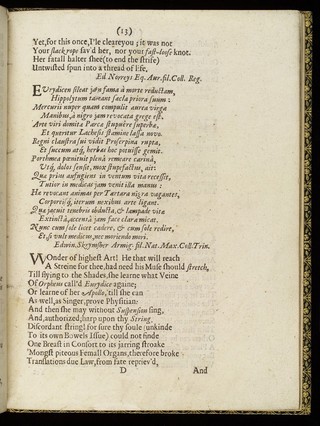 (13)
Yet, for this once, I'le cleare you; it was not
Your slack rope sav'd her, nor your fast-loose knot.
Her fatall halter shee (to end the strife)
Untwisted spun into a thread of life,
Ed Norreys Eq. Aur. fil. Coll. Reg.
EUrydicen sileat jam fama à morte reductam,
Hippolytum taceant sæcla priora suum:
Mercurii nuper quam compulit aurea virga
Manibus, à nigro jam revocata grege est.
Arte viri domita Parca stupuêre superba,
Et queritur Lachesis stamine lassa novo.
Regni claustra sui vidit Proserpina rupta,
Et succum atq, herbas hoc potuisse gemit.
Porthmea pœnituit plenâ remeare carinâ,
Utq, dolos sensit, mox stupefactus, ait:
Qua prius aufugiens in ventum vita recessit,
Tutior in medicas jam venit illa manus:
Hæ revocant animas per Tartara nigra vagantes,
Corporeiq, iterum nexibus arte ligant.
Qua jacuit tenebris obducta, & lampade vita
Extinctâ, accensâ jam face clara micat.
Nunc cum sole licet cadere, & cum sole redire,
Et, si vult medicus, nec moriendo mori.
Edwin. Skrymsher Armig. fil. Nat. Max. Coll. Trin.
WOnder of highest Art! He that will reach
A Streine for thee, had need his Muse should stretch,
Till flying to the Shades, she learne what Veine
Of Orpheus call'd Eurydice againe;
Or learne of her Apollo, till she can
As well, as Singer, prove Physitian:
And then she may without Suspension sing,
And, authorized, harp upon thy String.
Discordant string! for sure thy foule (unkinde
To its own Bowels Issue) could not finde
One Breast in Consort to its jarring stroake
'Mongst piteous Femall Organs, therefore broke
Translations due Law, from fate repriev'd,
D And